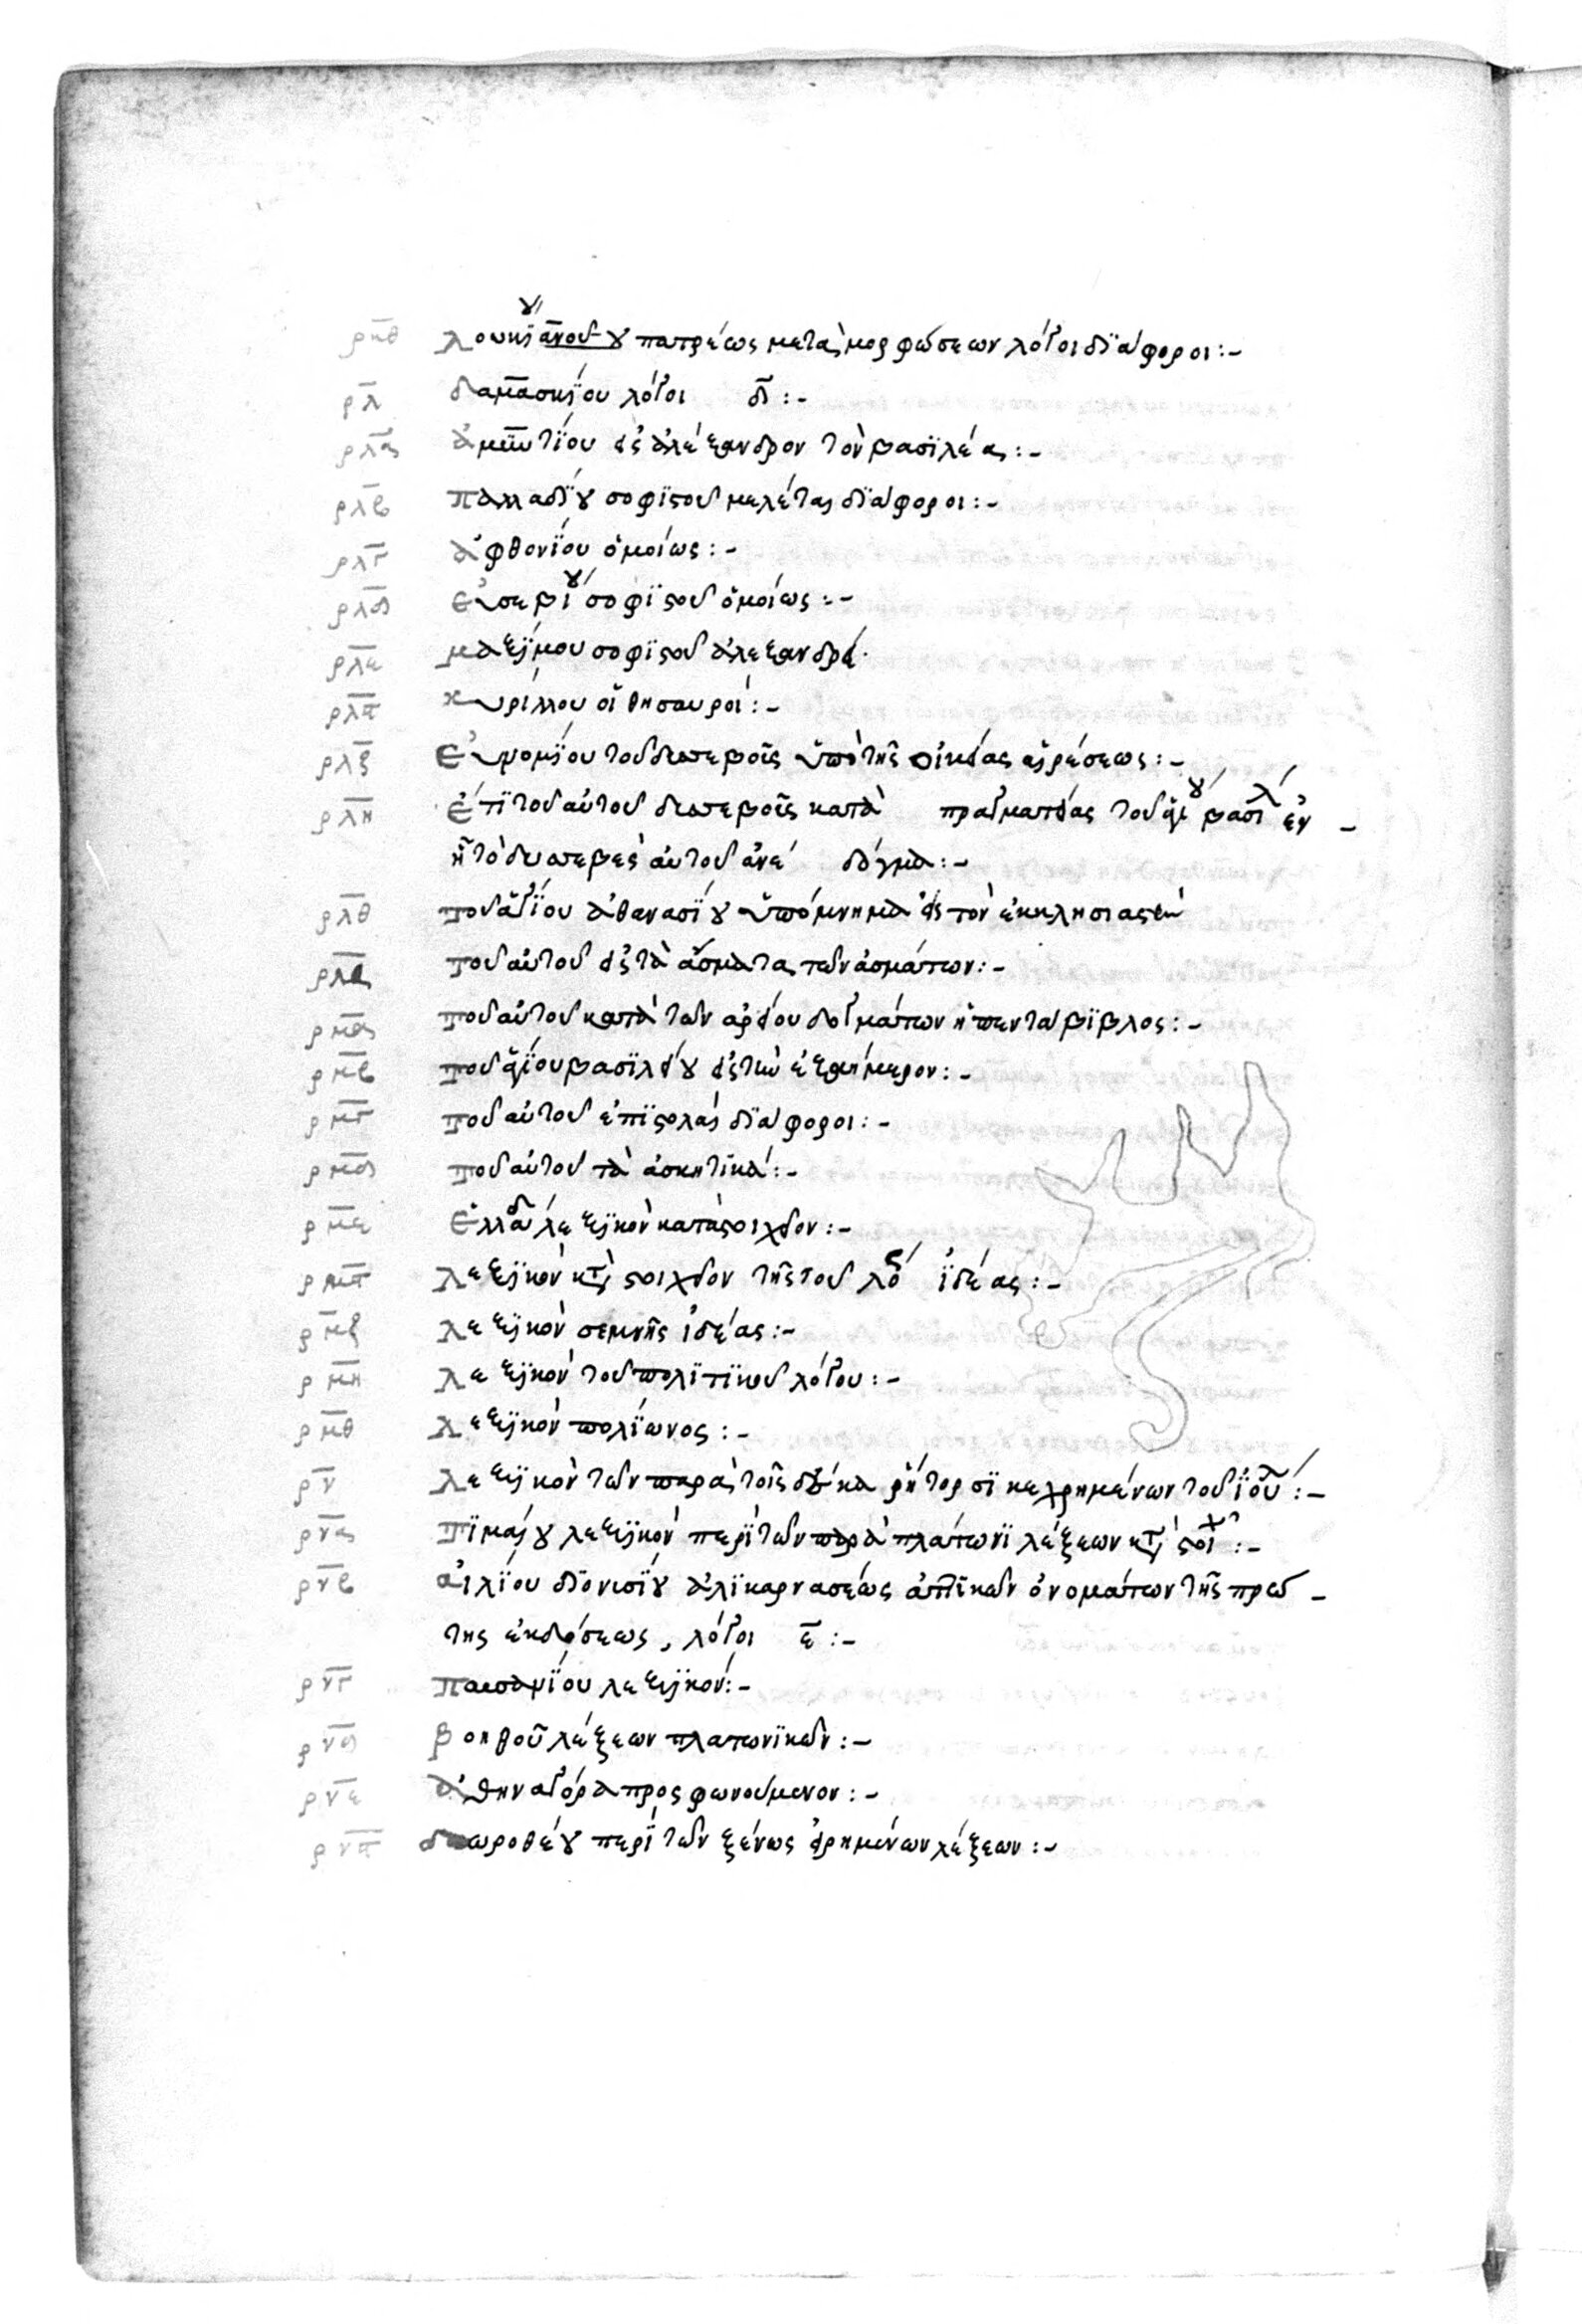 ρκθ λουκϊανοῦ πατρέως μεταμορφώσεων λόγοι δϊάφοροι:-
ρλ δαμασκϊου λόγοι δ:-
ρλα ἀμυντϊου εἰς ἀλέξανδρον τὸν βασϊλέα:-
ρλβ παλλαδϊου σοφϊστοῦ μελέται δϊάφοροι:-
ρλγ ἀφθονϊου ὁμοίως:-
ρλδ εὐσεβίου σοφϊστοῦ ὁμοίως:-
ρλε μαξϊμου σοφϊστοῦ ἀλεξανδρέ
ρλϛ κυρίλλου οἱ θησαυροί:-
ρλζ εὐνομϊου τοῦ δυσσεβοῦς ὑπὸ τῆς οἰκείας αἱρέσεως:-
ρλη ἔτϊ τοῦ αὐτοῦ δυσσεβοῦς κατὰ πραγματείας τοῦ ἁγίου βασιλ ἐν
ἧ τὸ δυσσεβὲς αὐτοῦ ἀνέ δόγμα:-
ρλθ τοῦ ἁγϊου ἀθανασϊου ὑπόμνημα εἰς τὸν ἐκκλησιαστὴν
τοῦ αὐτοῦ εἰς τὰ ἄσματα τῶν ἀσμάτων:-
ρμα τοῦ αὐτοῦ κατὰ τῶν ἀρείου δογμάτων ἡ πενταβϊβλος:-
ρμβ τοῦ ἁγϊου βασϊλείου εἰς τὴν ἑξαήμερον:-
ρμγ τοῦ αὐτοῦ ἐπϊστολαὶ δϊάφοροι:-
ρμδ τοῦ αὐτοῦ τὰ ἀσκητϊκά:-
ρμε ἑλλαδ λεξϊκὸν κατὰ στοιχεῖον:-
ρμϛ λεξϊκὸν κτ στοιχεῖον τῆς τοῦ λο ϊδέας:-
ρμζ λεξϊκὸν σεμνῆς ἰδέας:-
ρμη λεξϊκὸν τοῦ πολϊτϊκοῦ λόγου:-
ρμθ λεξϊκὸν πολϊωνος:-
ρν λεξϊκὸν τῶν παρὰ τοῖς δέκα ῥήτορσϊ κεχρημένων τοῦ ϊου:-
ρνα τϊμαίου λεξϊκὸν περὶ τῶν παρὰ πλάτωνϊ λέξεων κτ στοι:-
ρνβ αἰλϊου δϊονυσϊου ἀλϊκαρνασέως ἀττϊκῶν ὀνομάτων τῆς πρώ
της ἐκδόσεως, λόγοι ε:-
ρνγ παυσανϊου λεξϊκόν:-
ρνδ βοηθοῦ λέξεων πλατωνϊκῶν:-
ρνε ἀθηναγόρα προσφωνούμενον:-
ρνϛ δωροθέου περὶ τῶν ξένως εἰρημένων λέξεων:-